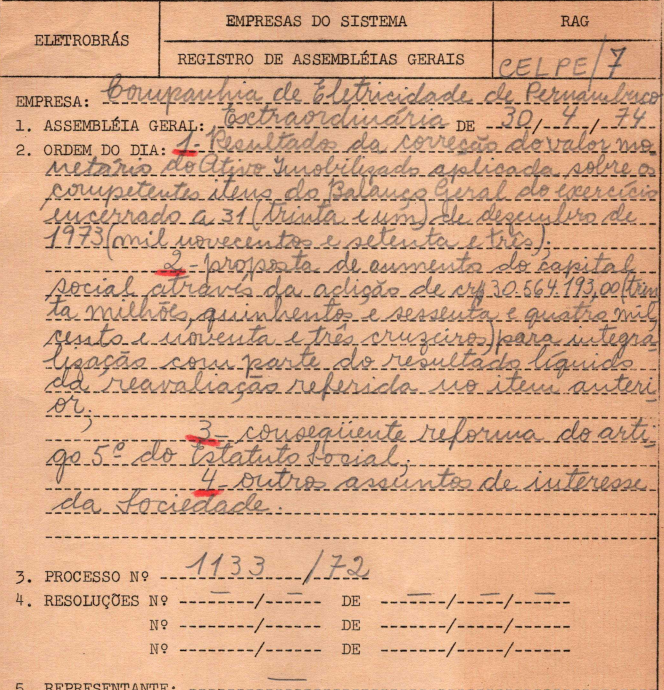 ELETROBRÁS
EMPRESAS DO SISTEMA
REGISTRO DE ASSEMBLÉIAS GERAIS
RAG
CELPE/7
EMPRESA: Companhia de Eletricidade de Pernambuco
1. ASSEMBLÉIA GERAL: Extraordinária DE 30/4/74
2. ORDEM DO DIA: 1- Resultados da correção do valor mo-
netário do Ativo Imobilizado aplicada sobre os
competentes itens do Balanço Geral do exercício
encerrado a 31 (trinta e um) de dezembro de
1973 (mil novecentos e setenta e três);
2- proposta de aumento do capital
social através da adição de cr$ 30.564.193,00 (trin
ta milhões, quinhentos e sessenta e quatro mil,
cento e noventa e três cruzeiros) para integra-
lisação com parte do resultado líquido
da reavaliação referida no item anteri-
or;
3- conseqüente reforma do arti-
go 5º do Estatuto Social;
4- outros assuntos de interesse
da Sociedade.
3. PROCESSO Nº 1133/72
4. RESOLUÇÕES Nº —/— DE —/—/—
Nº / DE / /
Nº / DE / /
5. REPRESENTANTE: —